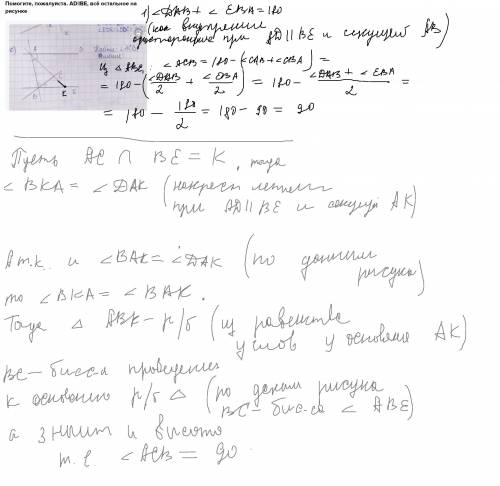 Помогите, пожалуйста. AD||BE, всё остальное на
рисунке
1) ∠DAB + ∠EBA = 180
(как внутренние
односторонние при AD || BE и секущей AB)
Из △ABC: ∠ACB = 180 - (∠CAB + ∠CBA) =
= 180 - (∠DAB/2 + ∠EBA/2) = 180 - (∠DAB + ∠EBA)/2 =
= 180 - 180/2 = 180 - 90 = 90
Пусть AC ∩ BE = K, тогда
∠BKA = ∠DAK (накрест лежащие
при AD || BE и секущей AK)
А т.к. и ∠BAK = ∠DAK (по данным
рисунка)
то ∠BKA = ∠BAK.
Тогда △ABK - р/б (из равенства
углов у основания AK)
BC - бисс-а проведённая
к основанию р/б △ (по данным рисунка
BC - бис-са ∠ABE)
а значит и высота
т.е ∠ACB = 90